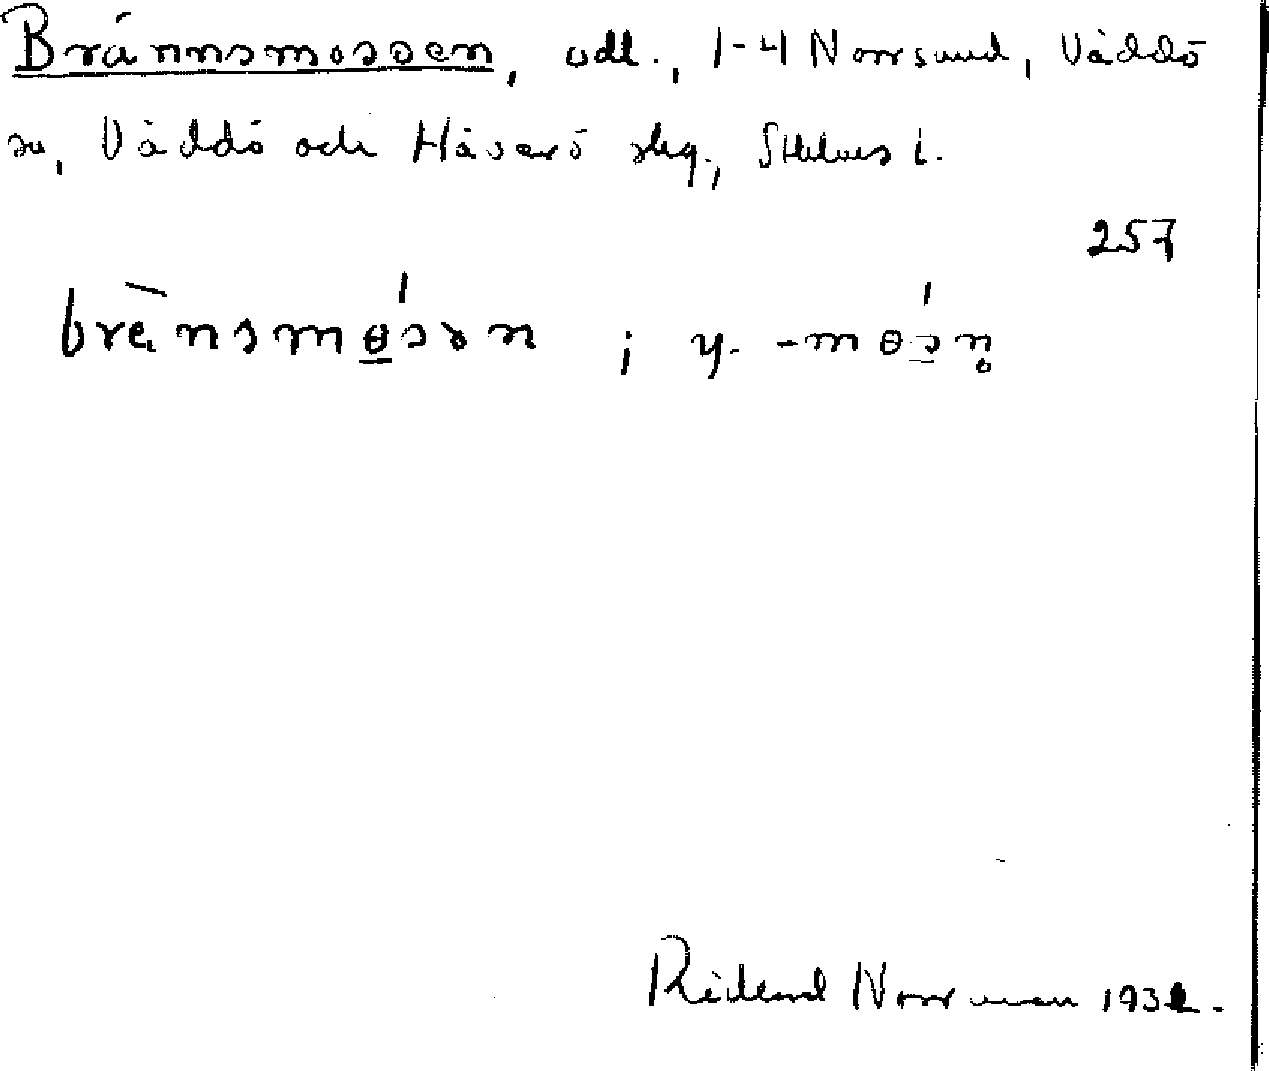 Brännsmossen, odl., 1-4 Norrsund, Väddö
sn, Väddö och Häverö skg., Sthlms l.
257
brènsmøsɤn ; y. -møsn̥
Rickard Norrman 1932.